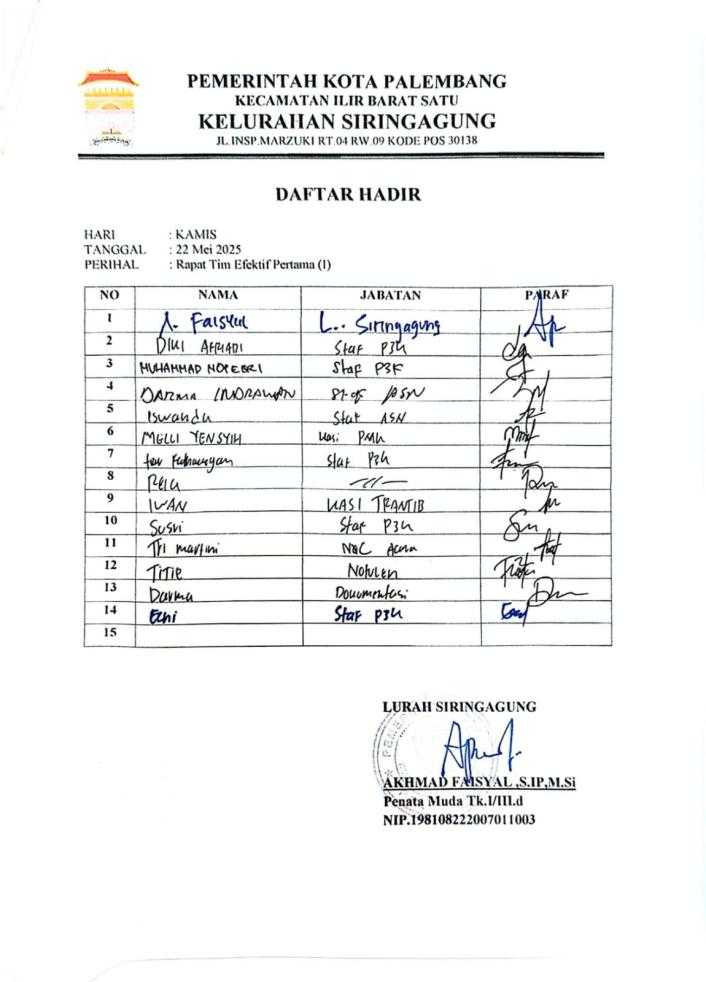 PEMERINTAH KOTA PALEMBANG
KECAMATAN ILIR BARAT SATU
KELURAHAN SIRINGAGUNG
JL.INSP.MARZUKI RT.04 RW.09 KODE POS 30138
DAFTAR HADIR
HARI : KAMIS
TANGGAL : 22 Mei 2025
PERIHAL : Rapat Tim Efektif Pertama (I)
NO NAMA JABATAN PARAF
1 A. Faisyal L.. Siringagung
2 DIKI AFRIADI Staf P3K
3 MUHAMMAD Staf P3K
4 DARMA INDRAWAN ASN
5 Iswandu Staf ASN
6 MELLI YENSYIH Kasi PMK
7 Staf P3K
8
9 IWAN KASI TRANTIB
10 Susri Staf P3K
11 Tri martini Acara
12 TITIE Notulen
13 Darma Documentasi
14 Erni Staf P3K
15
LURAH SIRINGAGUNG
AKHMAD FAISYAL ,S.IP,M.Si
Penata Muda Tk.I/III.d
NIP.198108222007011003